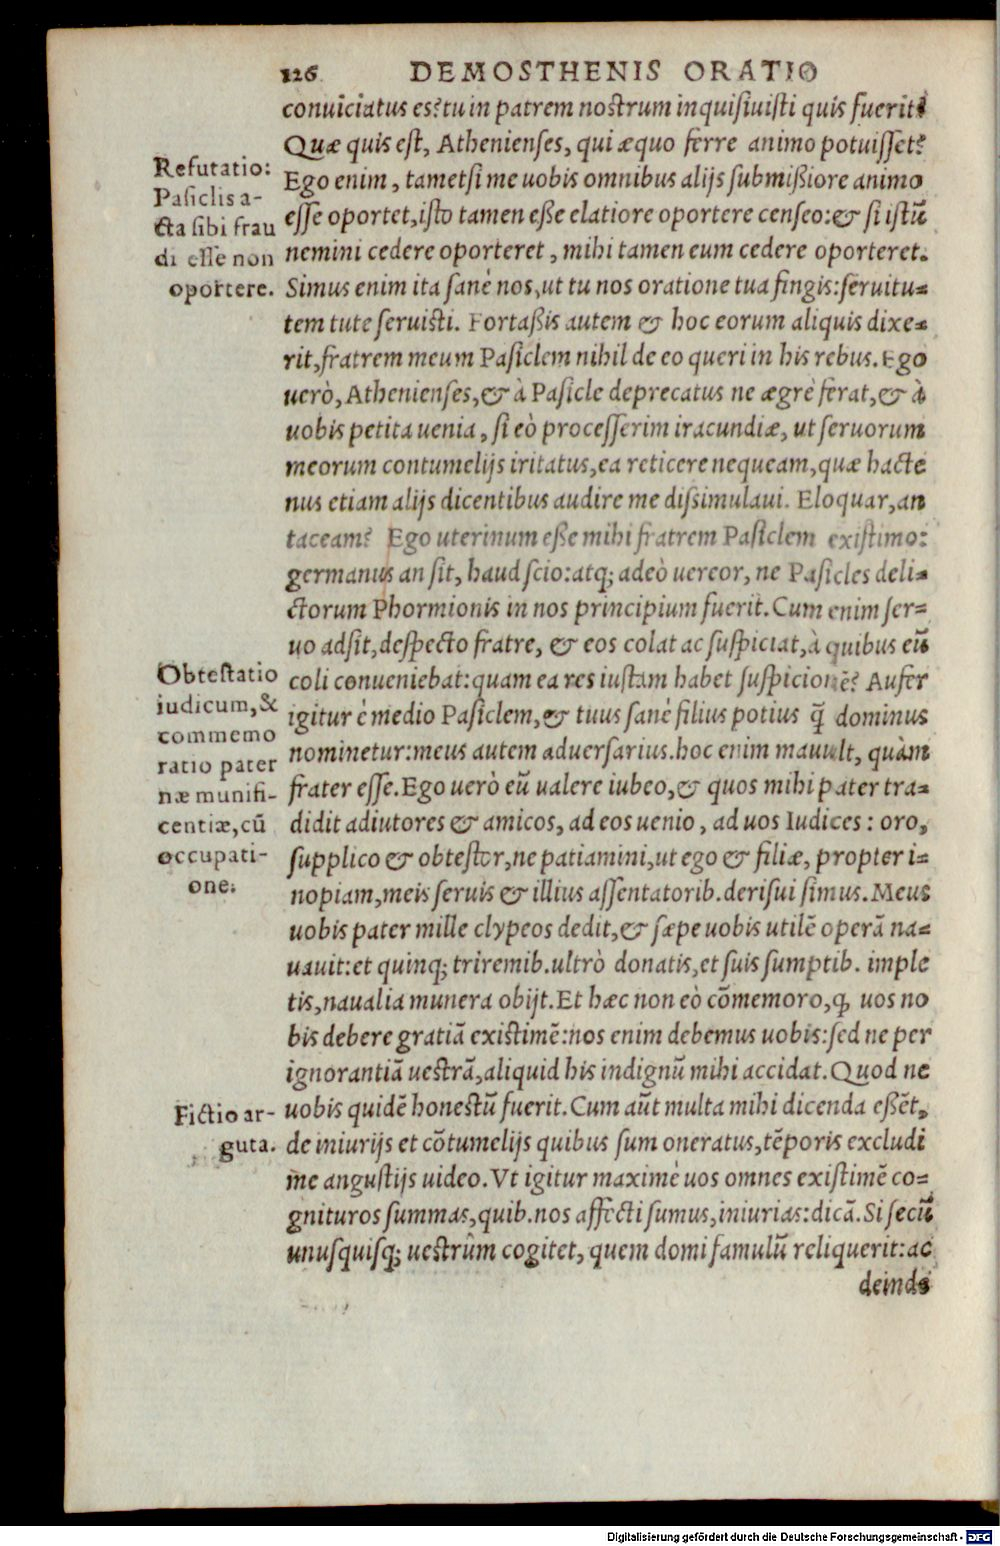 126 DEMOSTHENIS ORATIO
conuiciatus es? tu in patrem nostrum inquisiuisti quis fuerit?
Quæ quis est, Athenienses, qui æquo ferre animo potuisset?
Refutatio:
Pasiclis a-
cta sibi frau
di esse non
oportere.
Ego enim, tametsi me uobis omnibus alijs submißiore animo
esse oportet, isto tamen eße elatiore oportere censeo: & si istū
nemini cedere oporteret, mihi tamen eum cedere oporteret.
Simus enim ita sanè nos, ut tu nos oratione tua fingis: seruitu-
tem tute seruisti. Fortaßis autem & hoc eorum aliquis dixe-
rit, fratrem meum Pasiclem nihil de eo queri in his rebus. Ego
uerò, Athenienses, & à Pasicle deprecatus ne ægrè ferat, & à
uobis petita uenia, si eò processerim iracundiæ, ut seruorum
meorum contumelijs iritatus, ea reticere nequeam, quæ hacte
nus etiam alijs dicentibus audire me dissimulaui. Eloquar, an
taceam? Ego uterinum eße mihi fratrem Pasiclem existimo:
germanus an sit, haud scio: atq; adeò uereor, ne Pasicles deli-
ctorum Phormionis in nos principium fuerit. Cum enim ser-
uo adsit, despecto fratre, & eos colat ac suspiciat, à quibus eū
Obtestatio
iudicum, &
commemo
ratio pater
næ munifi-
centiæ, cū
occupati-
one.
coli conueniebat: quam ea res iustam habet suspicionē? Aufer
igitur è medio Pasiclem, & tuus sanè filius potius q̄ dominus
nominetur: meus autem aduersarius. hoc enim mauult, quàm
frater esse. Ego uerò eū ualere iubeo, & quos mihi pater tra-
didit adiutores & amicos, ad eos uenio, ad uos Iudices: oro,
supplico & obtestor, ne patiamini, ut ego & filiæ, propter i-
nopiam, meis seruis & illius assentatorib. derisui simus. Meus
uobis pater mille clypeos dedit, & sæpe uobis utilē operā na-
uauit: et quinq; triremib. ultrò donatis, et suis sumptib. imple
tis, naualia munera obijt. Et hæc non eò cōmemoro, ꝙ uos no
bis debere gratiā existimē: nos enim debemus uobis: sed ne per
ignorantiā uestrā, aliquid his indignū mihi accidat. Quod ne
Fictio ar-
guta.
uobis quidē honestū fuerit. Cum aūt multa mihi dicenda eßēt,
de iniurijs et cōtumelijs quibus sum oneratus, tēporis excludi
me angustijs uideo. Vt igitur maximè uos omnes existimē co-
gnituros summas, quib. nos affecti sumus, iniurias: dicā. Si secū
unusquisq; uestrûm cogitet, quem domi famulū reliquerit: ac
deinde
Digitalisierung gefördert durch die Deutsche Forschungsgemeinschaft - DFG